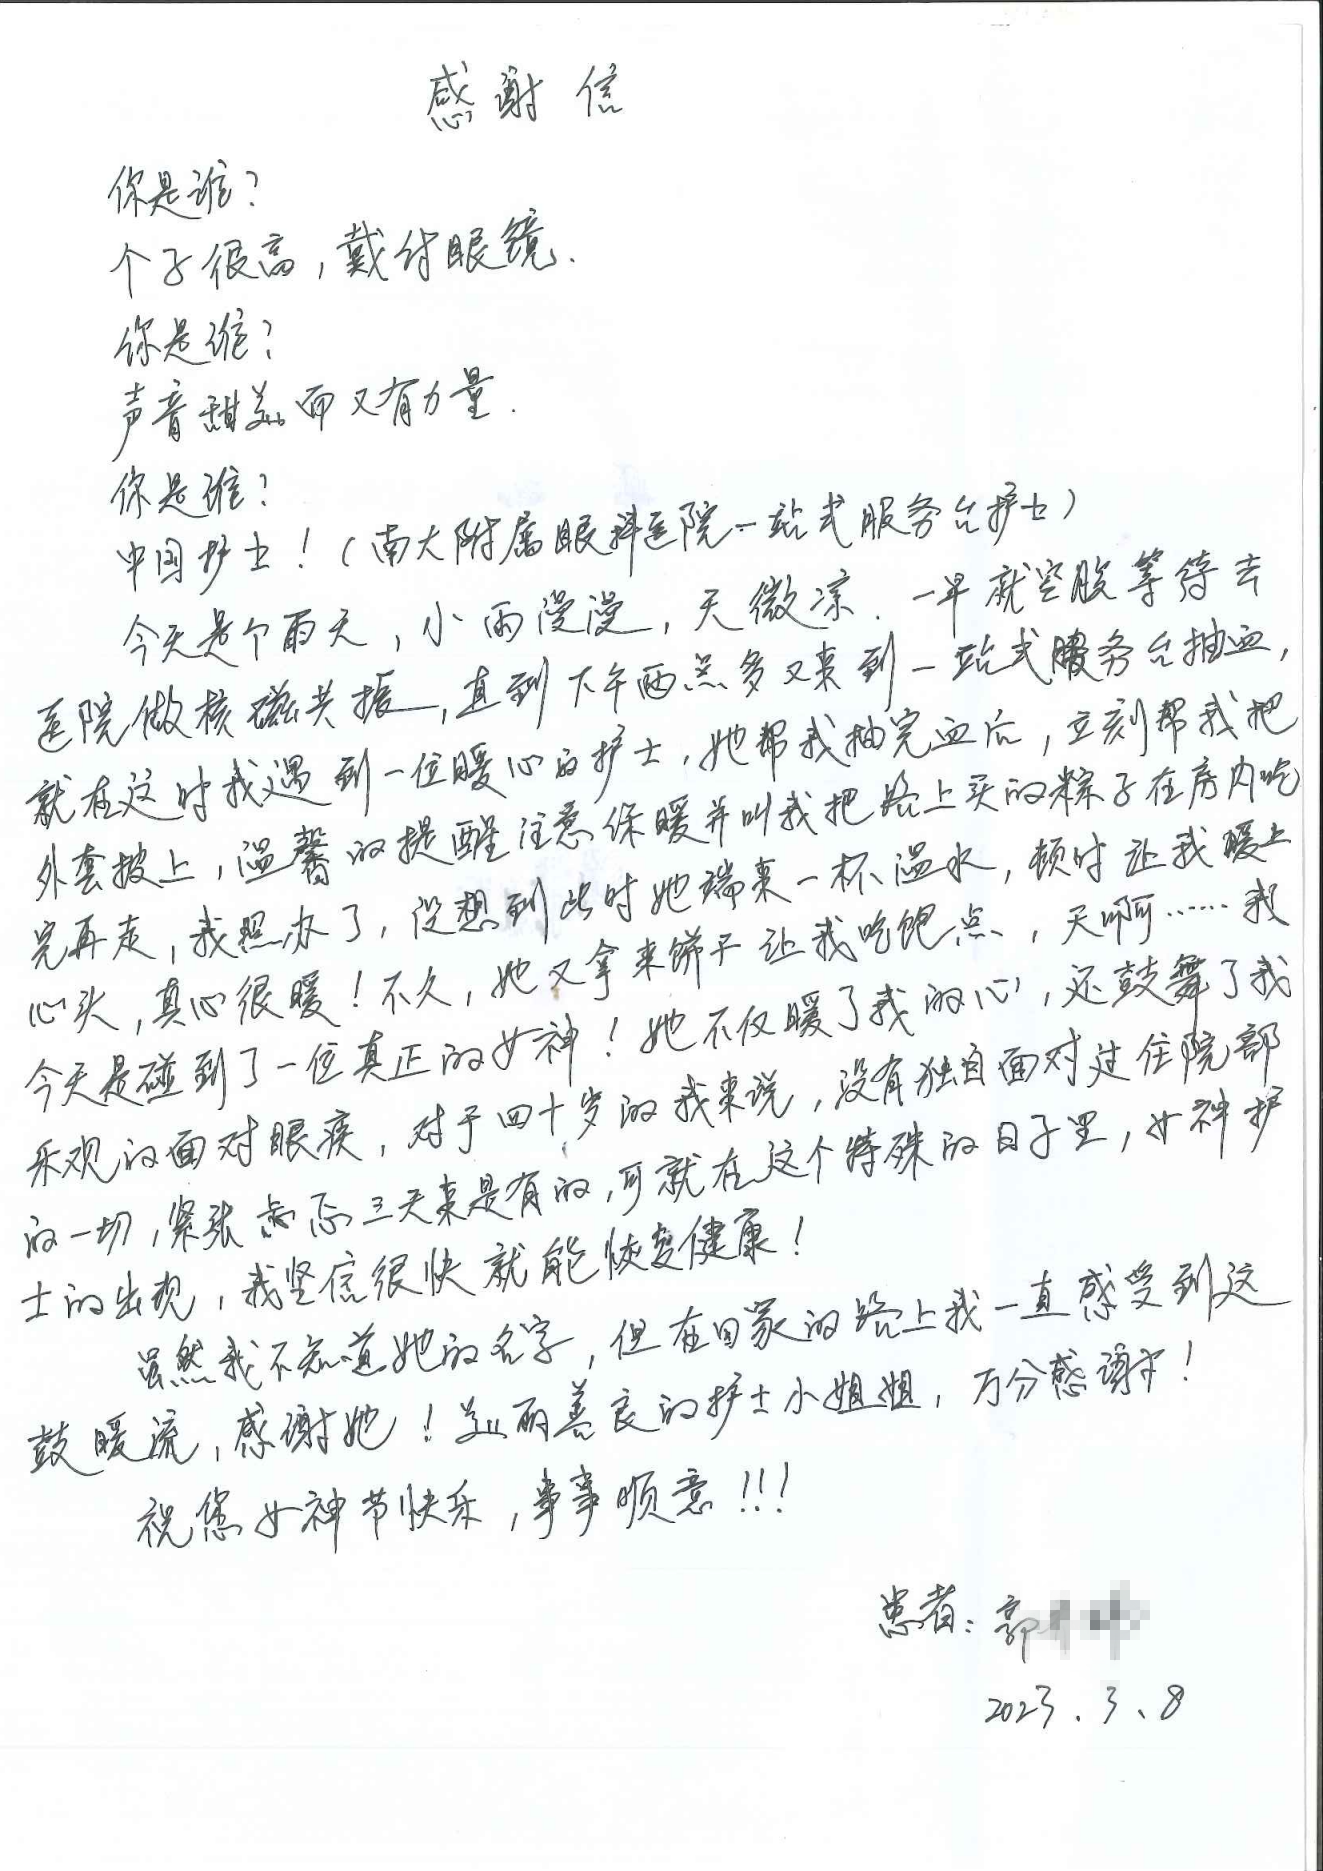 感谢信
你是谁?
个子很高,戴付眼镜.
你是谁?
声音甜美而又有力量.
你是谁?
中国护士!(南大附属眼科医院一站式服务台护士)
今天是个雨天,小雨漫漫,天微凉.一早就空腹等待去
医院做核磁共振,直到下午两点多又来到一站式服务台抽血,
就在这时我遇到一位暖心的护士,她帮我抽完血后,立刻帮我把
外套披上,温馨的提醒注意保暖并叫我把路上买的粽子在房内吃
完再走,我照办了,没想到此时她端来一杯温水,顿时让我暖上
心头,真心很暖!不久,她又拿来饼干让我吃饱点,天啊……我
今天是碰到了一位真正的女神!她不仅暖了我的心,还鼓舞了我
乐观的面对眼疾,对于四十岁的我来说,没有独自面对过住院部
的一切,紧张忐忑三天来是有的,可就在这个特殊的日子里,女神护
士的出现,我坚信很快就能恢复健康!
虽然我不知道她的名字,但在回家的路上我一直感受到这
鼓暖流,感谢她!美丽善良的护士小姐姐,万分感谢!
祝您女神节快乐,事事顺意!!!
患者:郭
2023.3.8